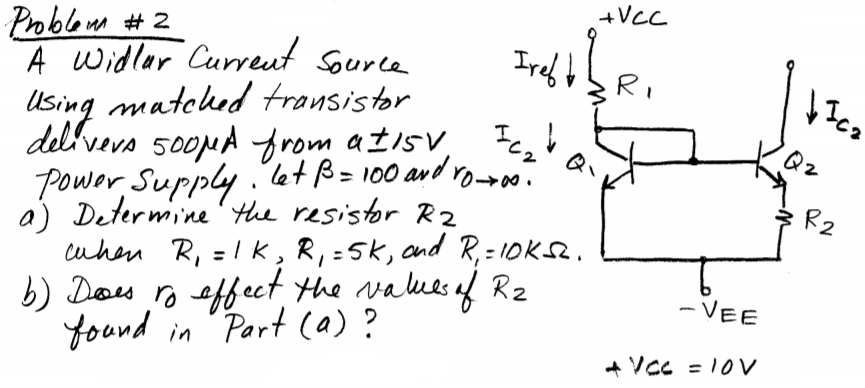 Problem # 2
A Widlar Current Source
Using matched transistor
delivers 500µA from a ±15V
Power Supply. Let β = 100 and ro→∞.
a) Determine the resistor R2
when R1 = 1K, R1 = 5K, and R1 = 10KΩ.
b) Does ro effect the values of R2
found in Part (a)?
+VCC
Iref
R1
IC2
IC2
Q1
Q2
R2
-VEE
+VCC = 10V